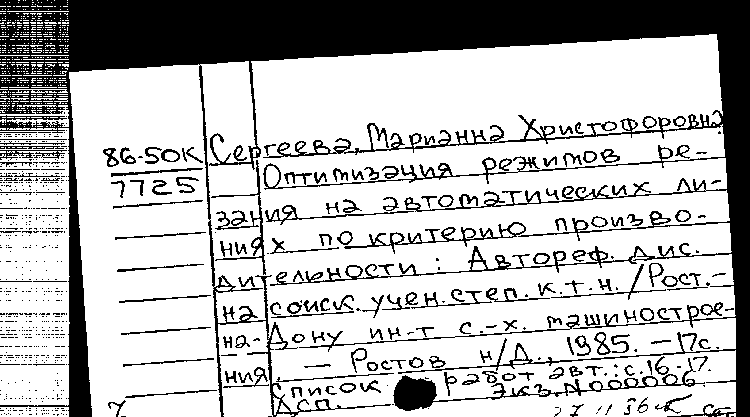 86-50К Сергеева, Марианна Христофоровна
7725 Оптимизация режимов ре-
зания на автоматических ли-
ниях по критерию произво-
дительности: Автореф. дис.
на соиск. учен. степ. к.т.н. / Рост.-
на-Дону ин-т с.-х. машинострое-
ния. — Ростов н/Д., 1985. — 17с.
Список работ авт.: с.16-17.
Дсп. Экз. N000006